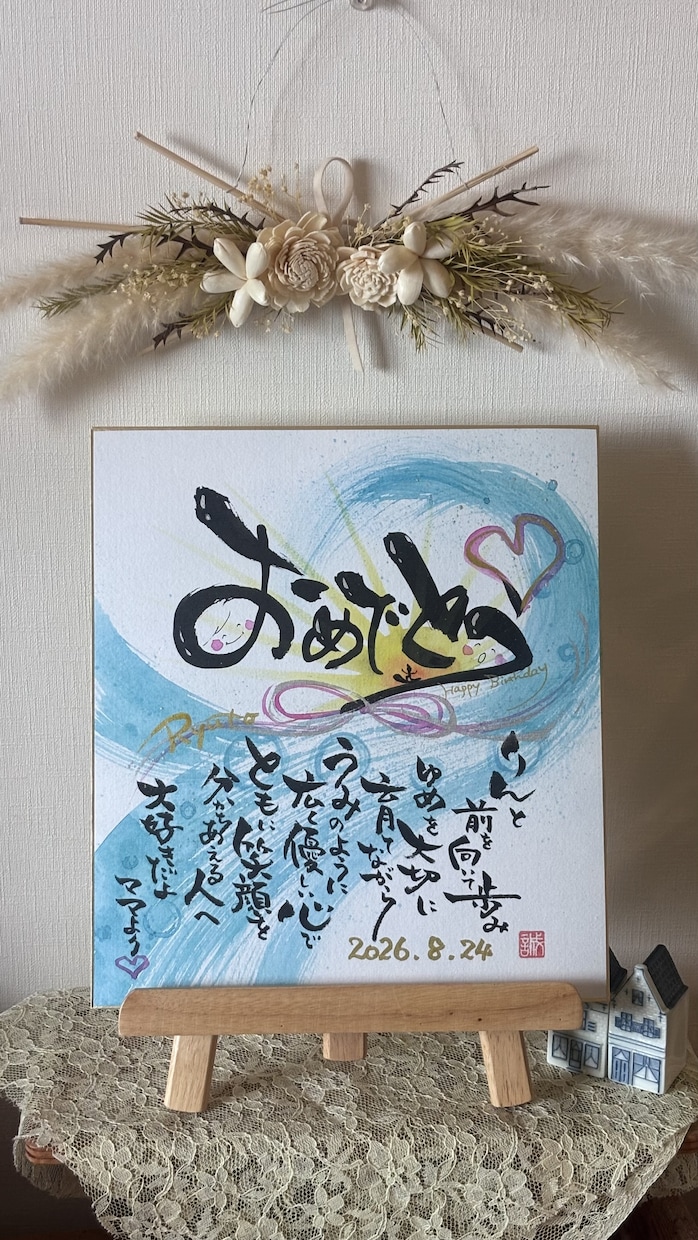 おめでとう
Happy Birthday
Ryuto
りんと
前を向いて歩み
ゆめを大切に
育てながら
うみのように
広く優しい心で
ともに笑顔を
分かちあえる人へ
大好きだよ
ママより
2026.8.24
誠